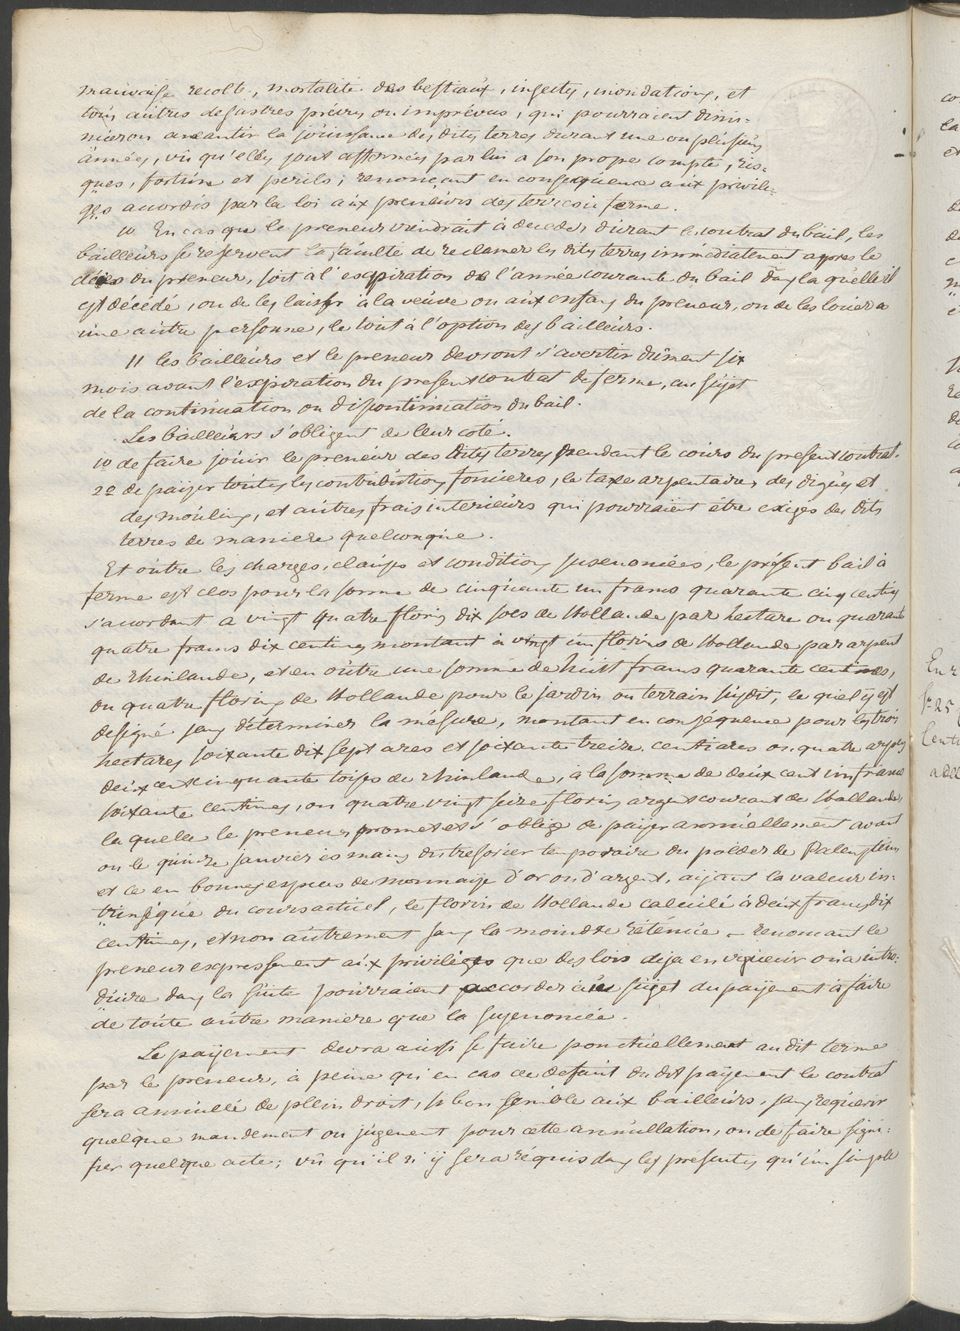 mauvaise recolte, mortalité des bestiaux, insectes, inondations, et
tous autres desastres prévus ou imprévus, qui pourraient dimi-
nuer ou anéantir la jouissance des dites terres durant une ou plusieurs
années, vu qu'elles sont affermées par lui a son propre compte, ris-
ques, fortune et perils; renonçant en consequence aux privile-
ges accordés par la loi aux preneurs des terres en ferme.
10 En cas que le preneur viendrait à deceder durant le contrat du bail, les
bailleurs se reservent la faculté de reclamer les dites terres immédiatement apres le
décès du preneur, soit à l'expiration de l'année courante du bail dans la quelle il
est décédé, ou de les laisser à la veuve ou aux enfans du preneur, ou de les louer a
une autre personne, le tout à l'option des bailleurs.
11 les bailleurs et le preneur devront s'avertir dûment six
mois avant l'expiration du present contrat de ferme, au sujet
de la continuation ou discontinuation du bail.
Les bailleurs s'obligent de leur coté.
1o de faire jouir le preneur des dites terres pendant le cours du present contrat.
2o de payer toutes les contributions foncieres, la taxe arpentaire, des digues et
des moulins, et autres frais interieurs qui pourraient être exigés des dits
terres de maniere quelconque.
Et outre les charges, clauses et conditions susenoncées, le présent bail à
ferme est clos pour la somme de cinquante un francs quarante cinq centimes
s'accordant a vingt quatre florins dix sols de Hollande par hectare ou quarante
quatre francs dix centimes montant à vingt un florins de Hollande par arpent
de Rhinlande, et en outre une somme de huit francs quarante centimes,
ou quatre florins de Hollande pour le jardin ou terrain susdit, le quel y est
designé sans déterminer la mesure, montant en consequence pour les trois
hectares soixante dix sept ares et soixante treize centiares ou quatre arpents
deux cent cinquante toises de Rhinlande, à la somme de deux cent un francs
soixante centimes, ou quatre vingt seize florins argent courant de Hollande,
la quelle le preneur promet et s'oblige de payer annuellement avant
ou le quinze janvier es mains du tresorier temporaire du polder de Palenstein
et ce en bonnes especes de monnaye d'or ou d'argent, aijant la valeur in-
trinsèque du cours actuel, le florin de Hollande calculé à deux francs dix
centimes, et non autrement sans la moindre rétenue – renonçant le
preneur expressement aux privilèges que des lois deja en vigueur ou a intro-
duire dans la suite pourraient accorder au sujet du paijement à faire
de toute autre maniere que la susenoncée.
Le paijement devra aussi se faire ponctuellement au dit terme
par le preneur, à peine qu'en cas de defaut du dit payement le contrat
sera annullé de plein droit, si bon semble aux bailleurs, sans requerir
quelque mandement ou jugement pour cette annullation, ou de faire signi-
fier quelque acte; vu qu'il n'y sera requis dans les presentes qu'un simple